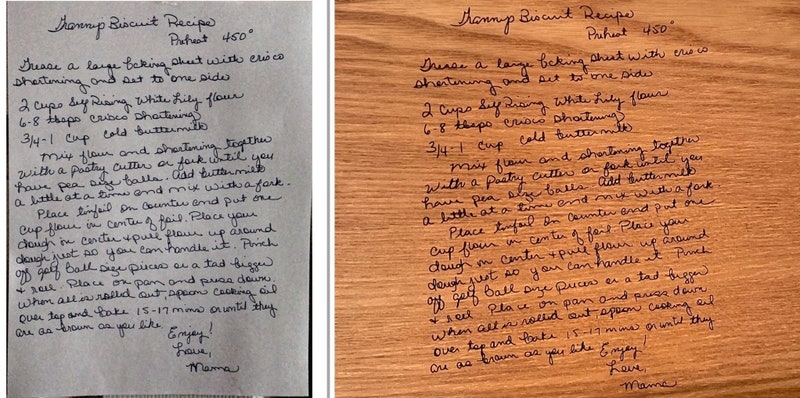 Granny's Biscuit Recipe
Preheat 450°
Grease a large bcking sheet with crisco
shortening and set to one side
2 cups Self Rising White Lily flour
6-8 tbsps crisco shortening
3/4-1 cup cold buttermilk
Mix flour and shortening together
with a pastry cutter or fork until you
have pea size balls. Add buttermilk
a little at a time and mix with a fork.
Place tinfoil on counter and put one
cup flour in center of foil. Place your
dough in center & pull flour up around
dough just so you can handle it. Pinch
off golf ball size pieces or a tad bigger
& roll. Place on pan and press down.
When all is rolled out spoon cooking oil
over top and bake 15-17 mins or until they
are as brown as you like.
Enjoy!
Love,
Mama
Granny's Biscuit Recipe
Preheat 450°
Grease a large bcking sheet with crisco
shortening and set to one side
2 cups Self Rising White Lily flour
6-8 tbsps crisco shortening
3/4-1 cup cold buttermilk
Mix flour and shortening together
with a pastry cutter or fork until you
have pea size balls. Add buttermilk
a little at a time and mix with a fork.
Place tinfoil on counter and put one
cup flour in center of foil. Place your
dough in center & pull flour up around
dough just so you can handle it. Pinch
off golf ball size pieces or a tad bigger
& roll. Place on pan and press down
When all is rolled out spoon cooking oil
over top and bake 15-17 mins or until they
are as brown as you like Enjoy!
Love,
Mama